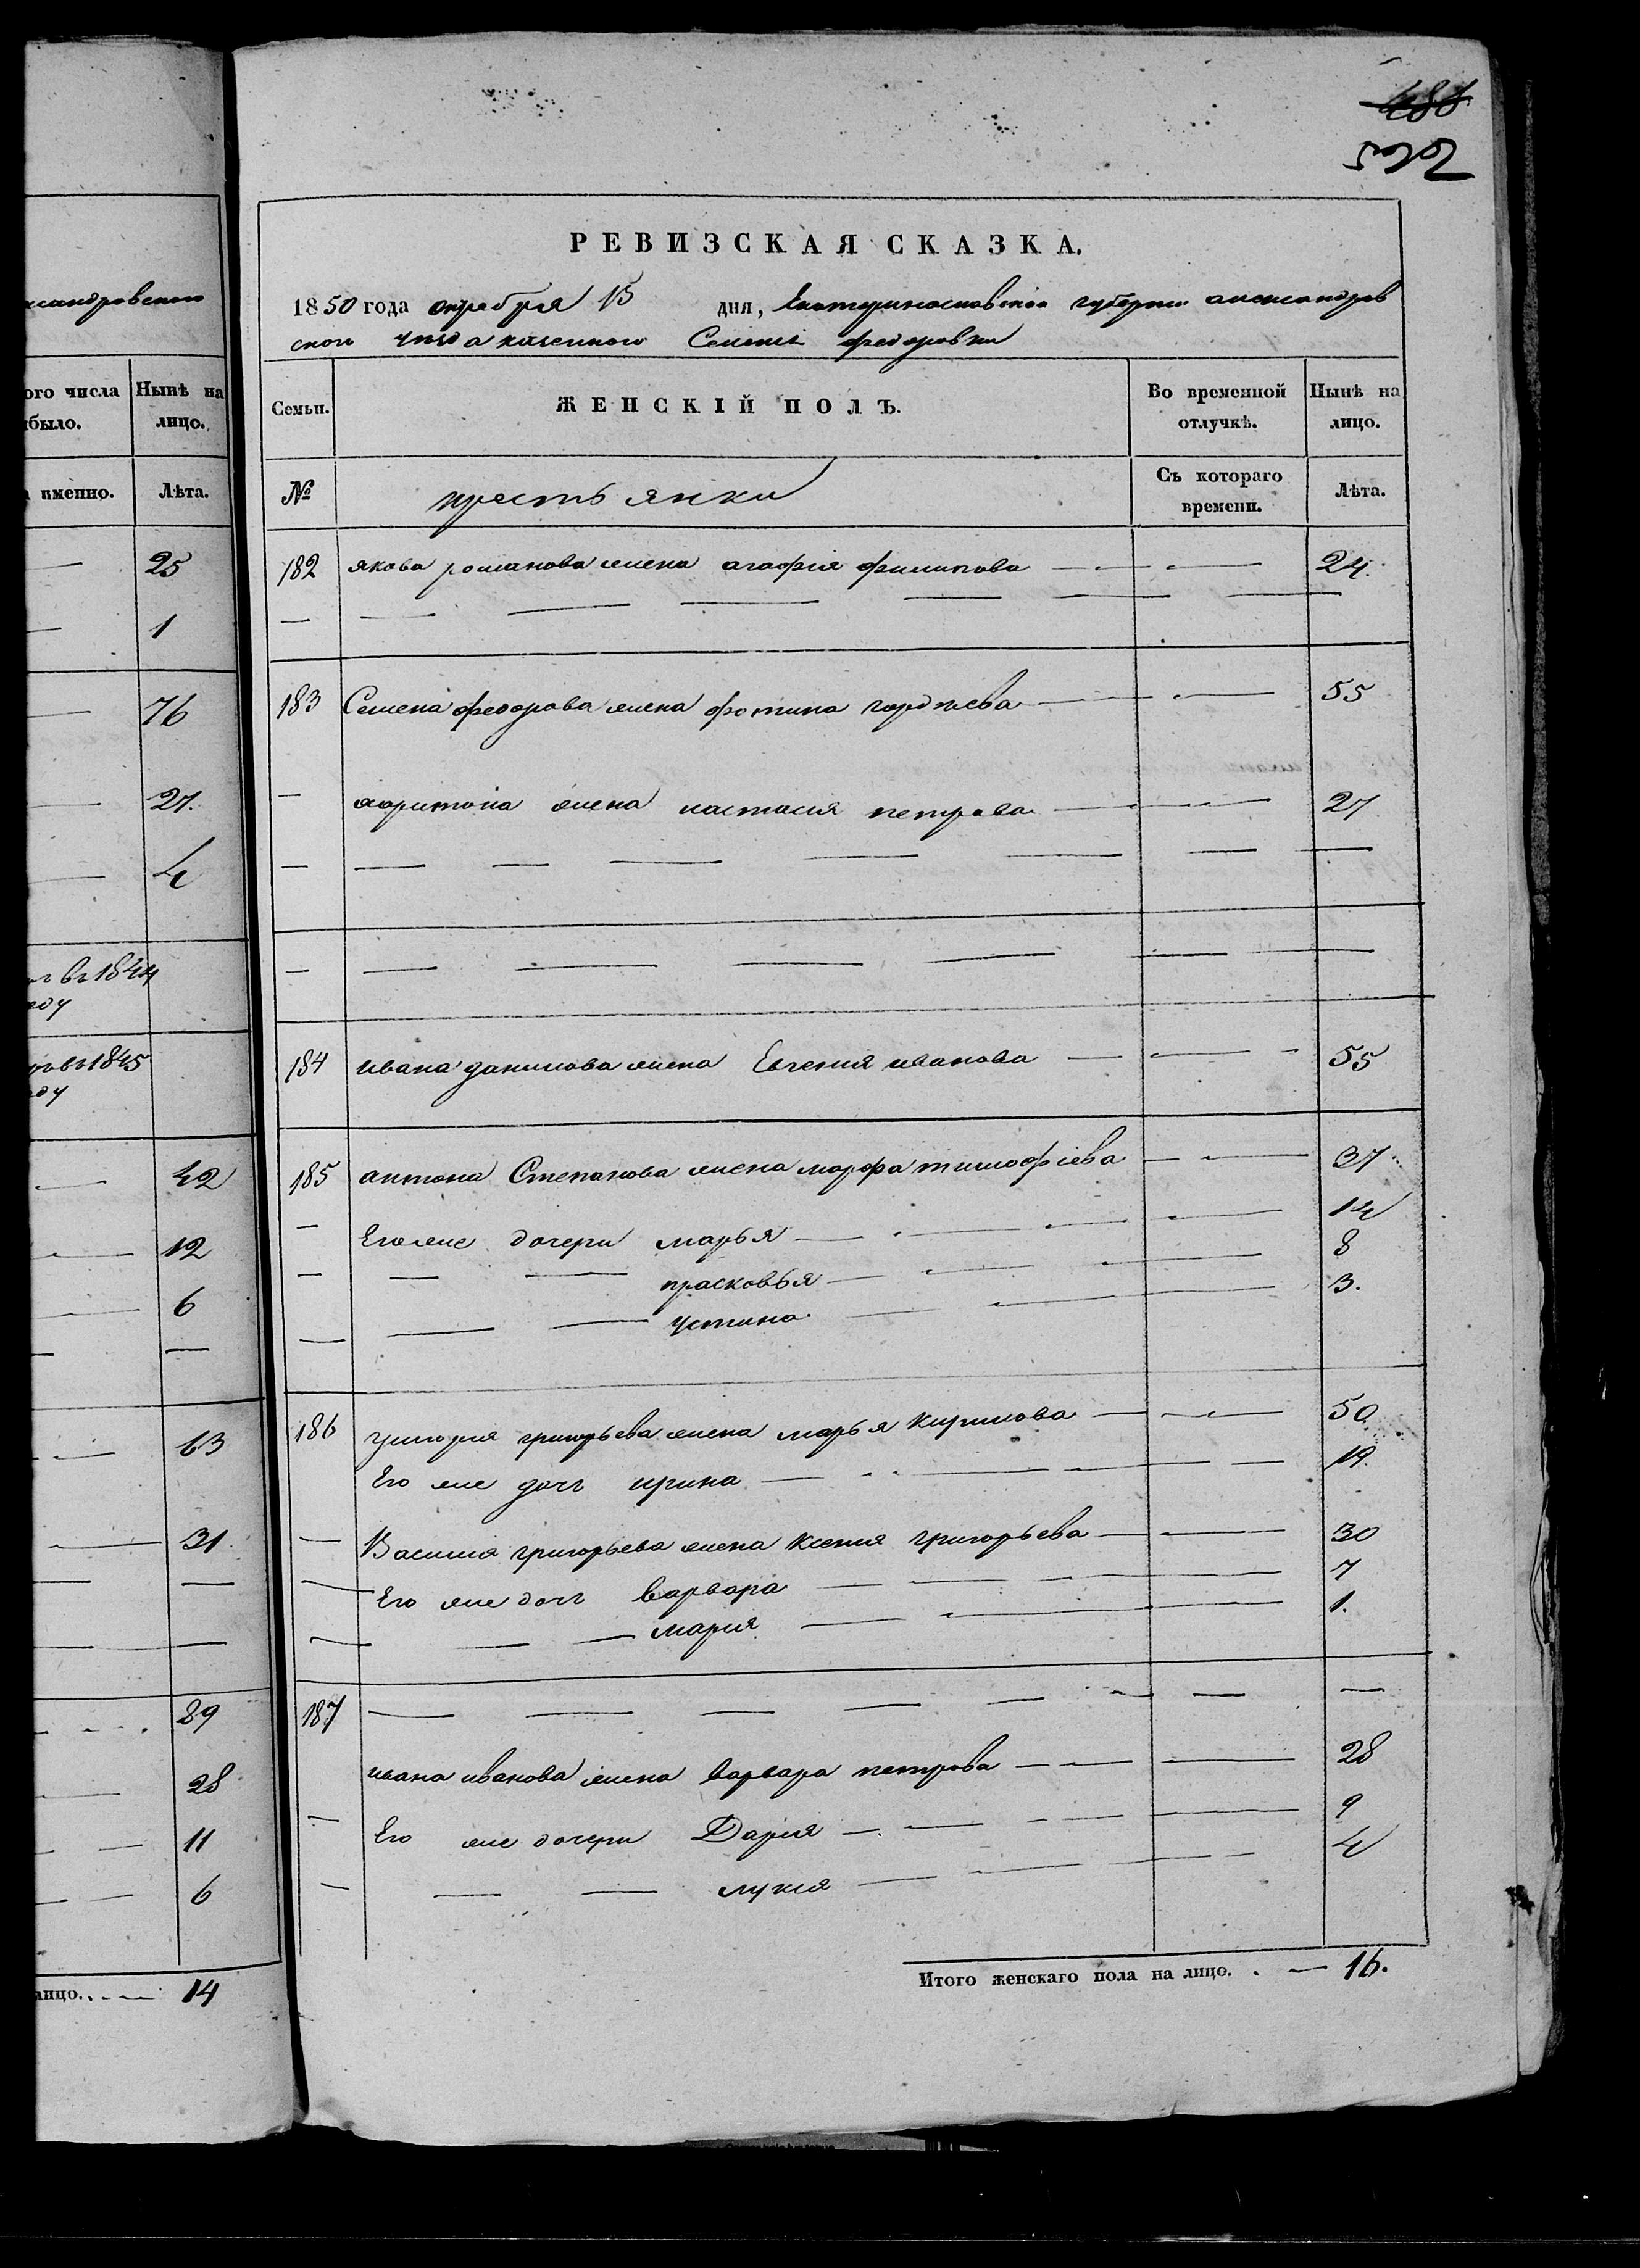 488
ксандровского
ого числа
было.
Нынѣ на
лицо.
именно.
Лѣта.
25
1
76
27.
4
въ 1844
году
въ 1845
году
42
12
6
63
31.
29
28
11
6
лицо. 14
РЕВИЗСКАЯ СКАЗКА.
1850 года октября 15 дня, Екатеринославской губернiи александров
ского уѣзда казенного Селенiя федоровки
Семьи. ЖЕНСКІЙ ПОЛЪ. Во временной отлучкѣ. Нынѣ на лицо.
№ крестьянки Съ котораго времени. Лѣта.
182 якова романова жена агафiя филипова 24.
183 Семена федорова жена фотина гордѣева 55
харитона жена настасiя петрова 27
184 ивана данилова жена Евгения иванова 55
185 антона Степанова жена марфа тимофiева 37
Егоже дочери марья 14
прасковья 8
устина 3.
186 григорiя григорьева жена марья кирилова 50.
Его же дочь ирина 19.
Василiя григорьева жена ксения григорьева 30
Его же дочь варвара 7
мария 1.
187
ивана иванова жена варвара петрова 28
Его же дочери Дария 9
лукiя 4
Итого женскаго пола на лицо. 16.